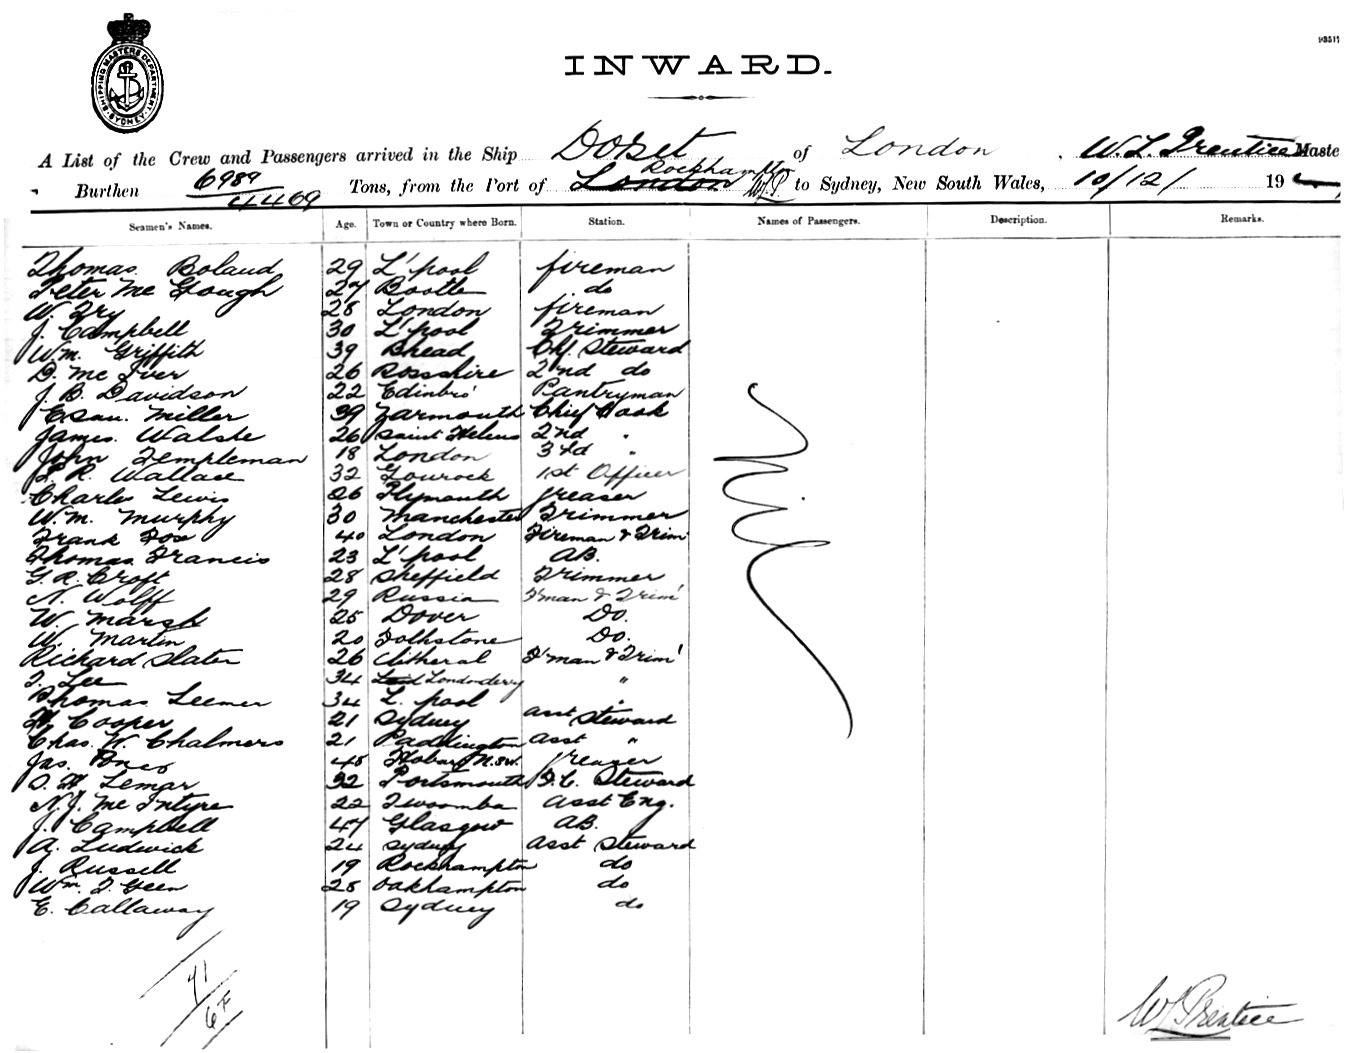 SHIPPING MASTERS DEPARTMENT SYDNEY
INWARD.
A List of the Crew and Passengers arrived in the Ship Dorset of London, W. L. Prentice Maste
Burthen 6989/4469 Tons, from the Port of London Rockhampton W.L.P. to Sydney, New South Wales, 10/12/ 19
Seamen's Names. Age. Town or Country where Born. Station. Names of Passengers. Description. Remarks.
Thomas Boland 29 L'pool fireman
Peter Mc Gough 27 Bootle do
W. Fry 28 London fireman
J. Campbell 30 L'pool Trimmer
Wm. Griffith 39 Bhead Chf. Steward
D. Mc Iver 26 Rossshire 2nd do
J. B. Davidson 22 Edinbro' Pantryman
Esau Miller 39 Yarmouth Chief Cook
James Walshe 26 Saint Helens 2nd "
John Templeman 18 London 3rd "
R. Wallace 32 Gourock 1st Officer
Charles Lewis 26 Plymouth greaser
W.m. Murphy 30 Manchester Trimmer
Frank Fox 40 London Fireman & Trim'
Thomas Francis 23 L'pool AB.
G. R. Croft 28 Sheffield Trimmer
N. Wolff 29 Russia F'man & Trim'
W. Marsh 25 Dover Do.
W. Martin 20 Folkstone Do.
Richard Slater 26 Clitheral F'man & Trim'
T. Lee 34 Londonderry "
Thomas Leemer 34 L. pool "
H. Cooper 21 Sydney asst Steward
Chas. W. Chalmers 21 Paddington asst "
Jas. Jones 45 Hobart N.S.W. greaser
H. Lemar 32 Portsmouth F.C. Steward
N. J. Mc Intyre 22 Twoomba asst Eng.
J. Campbell 47 Glasgow AB.
A. Ludwick 24 Sydney asst Steward
J. Russell 19 Rockhampton do
Wm. T. Geen 28 Oakhampton do
E. Callaway 19 Sydney do
Nil
71
67
W L Prentice